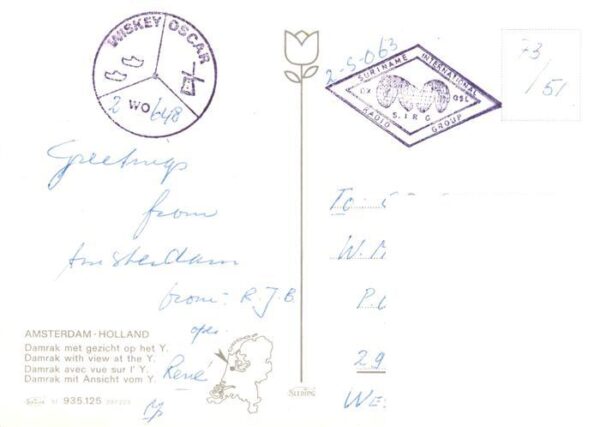 WISKEY OSCAR
2 WO 648
2-S-063
SURINAME INTERNATIONAL
DX QSL
S.I.R.G
RADIO GROUP
73/51
Greetings
from
Amsterdam
from: R.J.B
ops.
René
To:
W.
P.
29
We:
AMSTERDAM-HOLLAND
Damrak met gezicht op het Y.
Damrak with view at the Y.
Damrak avec vue sur l' Y.
Damrak mit Ansicht vom Y.
935.125